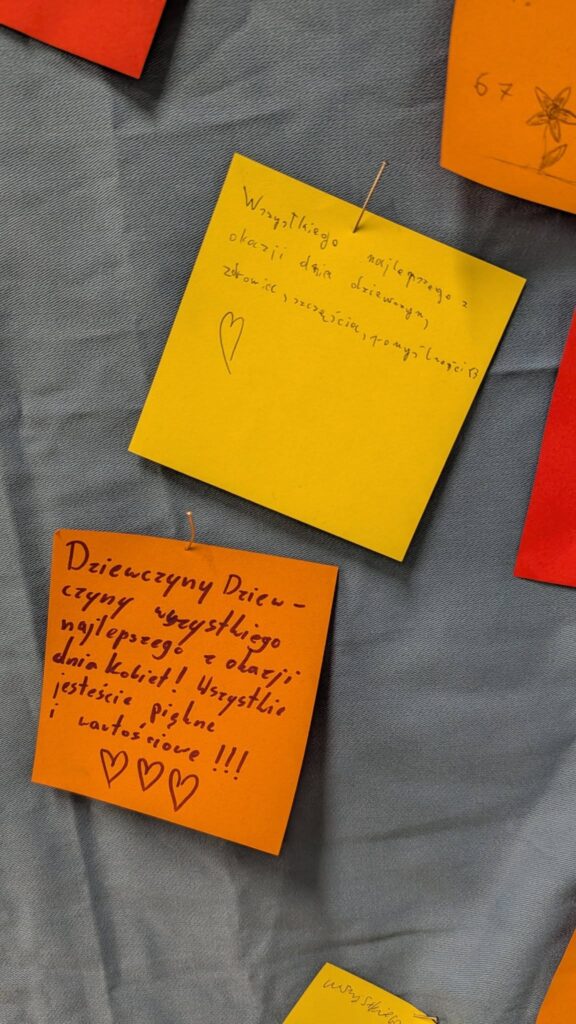 67
Wszystkiego najlepszego z
okazji dnia dziewczyn,
zdrowia, szczęścia, pomyślności <3
Dziewczyny Dziew-
czyny wszystkiego
najlepszego z okazji
dnia kobiet! Wszystkie
jesteście piękne
i wartościowe !!!
wszystkiego